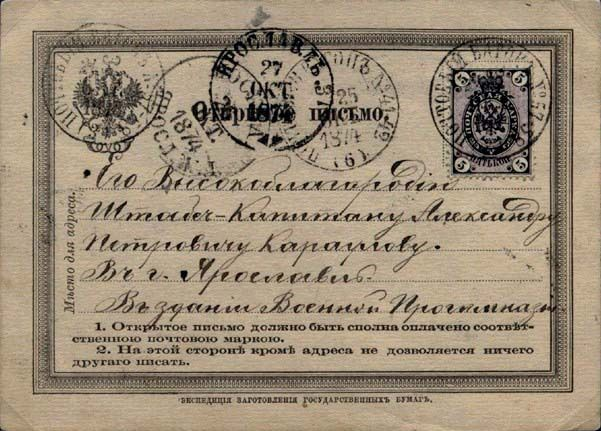 ЯРОСЛАВЛЬ
27
ОКТ.
1874
25
1874
(6)
ПОЧТОВЫЙ ВАГОНЪ
5 5
5 ПЯТЬ КОП. 5
Открытое письмо.
Мѣсто для адреса:
Его Высокоблагородію
Штабсъ-Капитану Александру
Петровичу Караулову.
Въ г. Ярославлѣ.
Въ зданіи Военной Прогимназіи
1. Открытое письмо должно быть сполна оплачено соотвѣт-
ственною почтовою маркою.
2. На этой сторонѣ кромѣ адреса не дозволяется ничего
другаго писать.
ЭКСПЕДИЦІЯ ЗАГОТОВЛЕНІЯ ГОСУДАРСТВЕННЫХЪ БУМАГЪ.